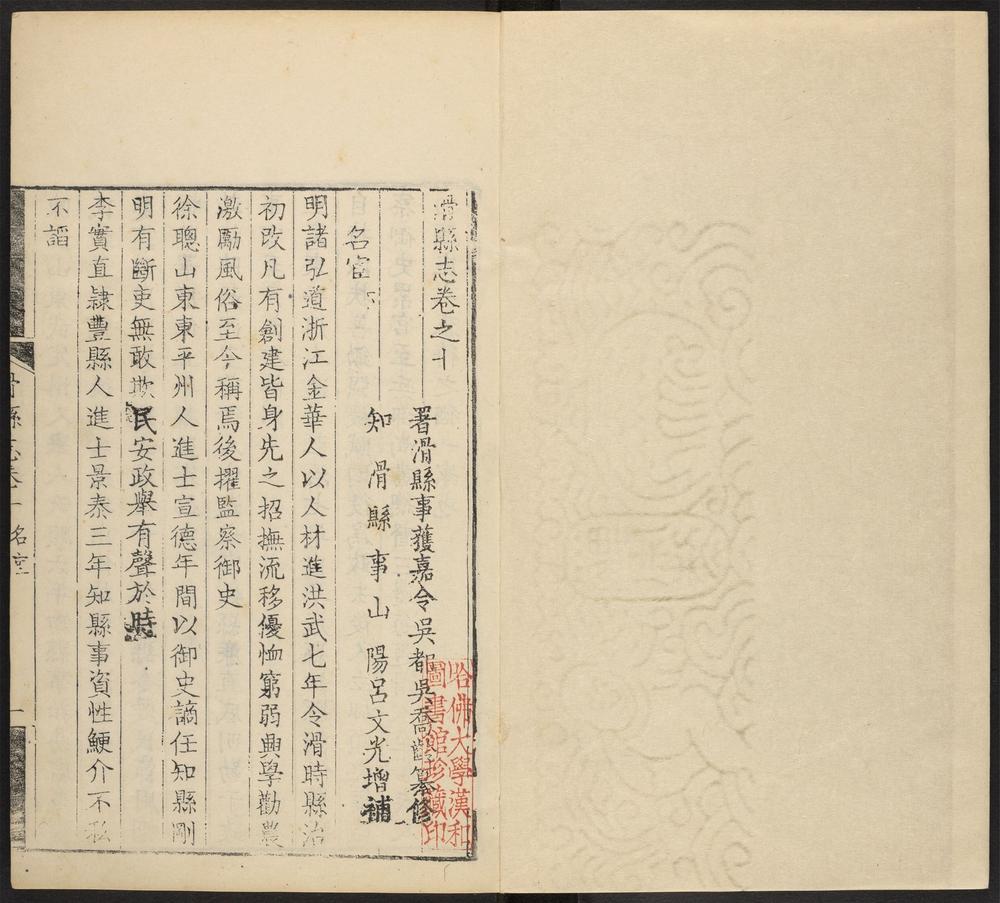 滑縣志卷之十
署滑縣事獲嘉令吳都吳喬齡纂修
知滑縣事山陽呂文光增補
名宦
明諸弘道浙江金華人以人材進洪武七年令滑時縣治
初改凡有創建皆身先之招撫流移優恤窮弱興學勸農
激勵風俗至今稱焉後擢監察御史
徐聰山東東平州人進士宣德年間以御史謫任知縣剛
明有斷吏無敢欺民安政舉有聲於時
李實直隸豐縣人進士景泰三年知縣事資性鯁介不私
不謟
滑縣志卷十 名宦 一
哈佛大學漢和
圖書館珍藏印